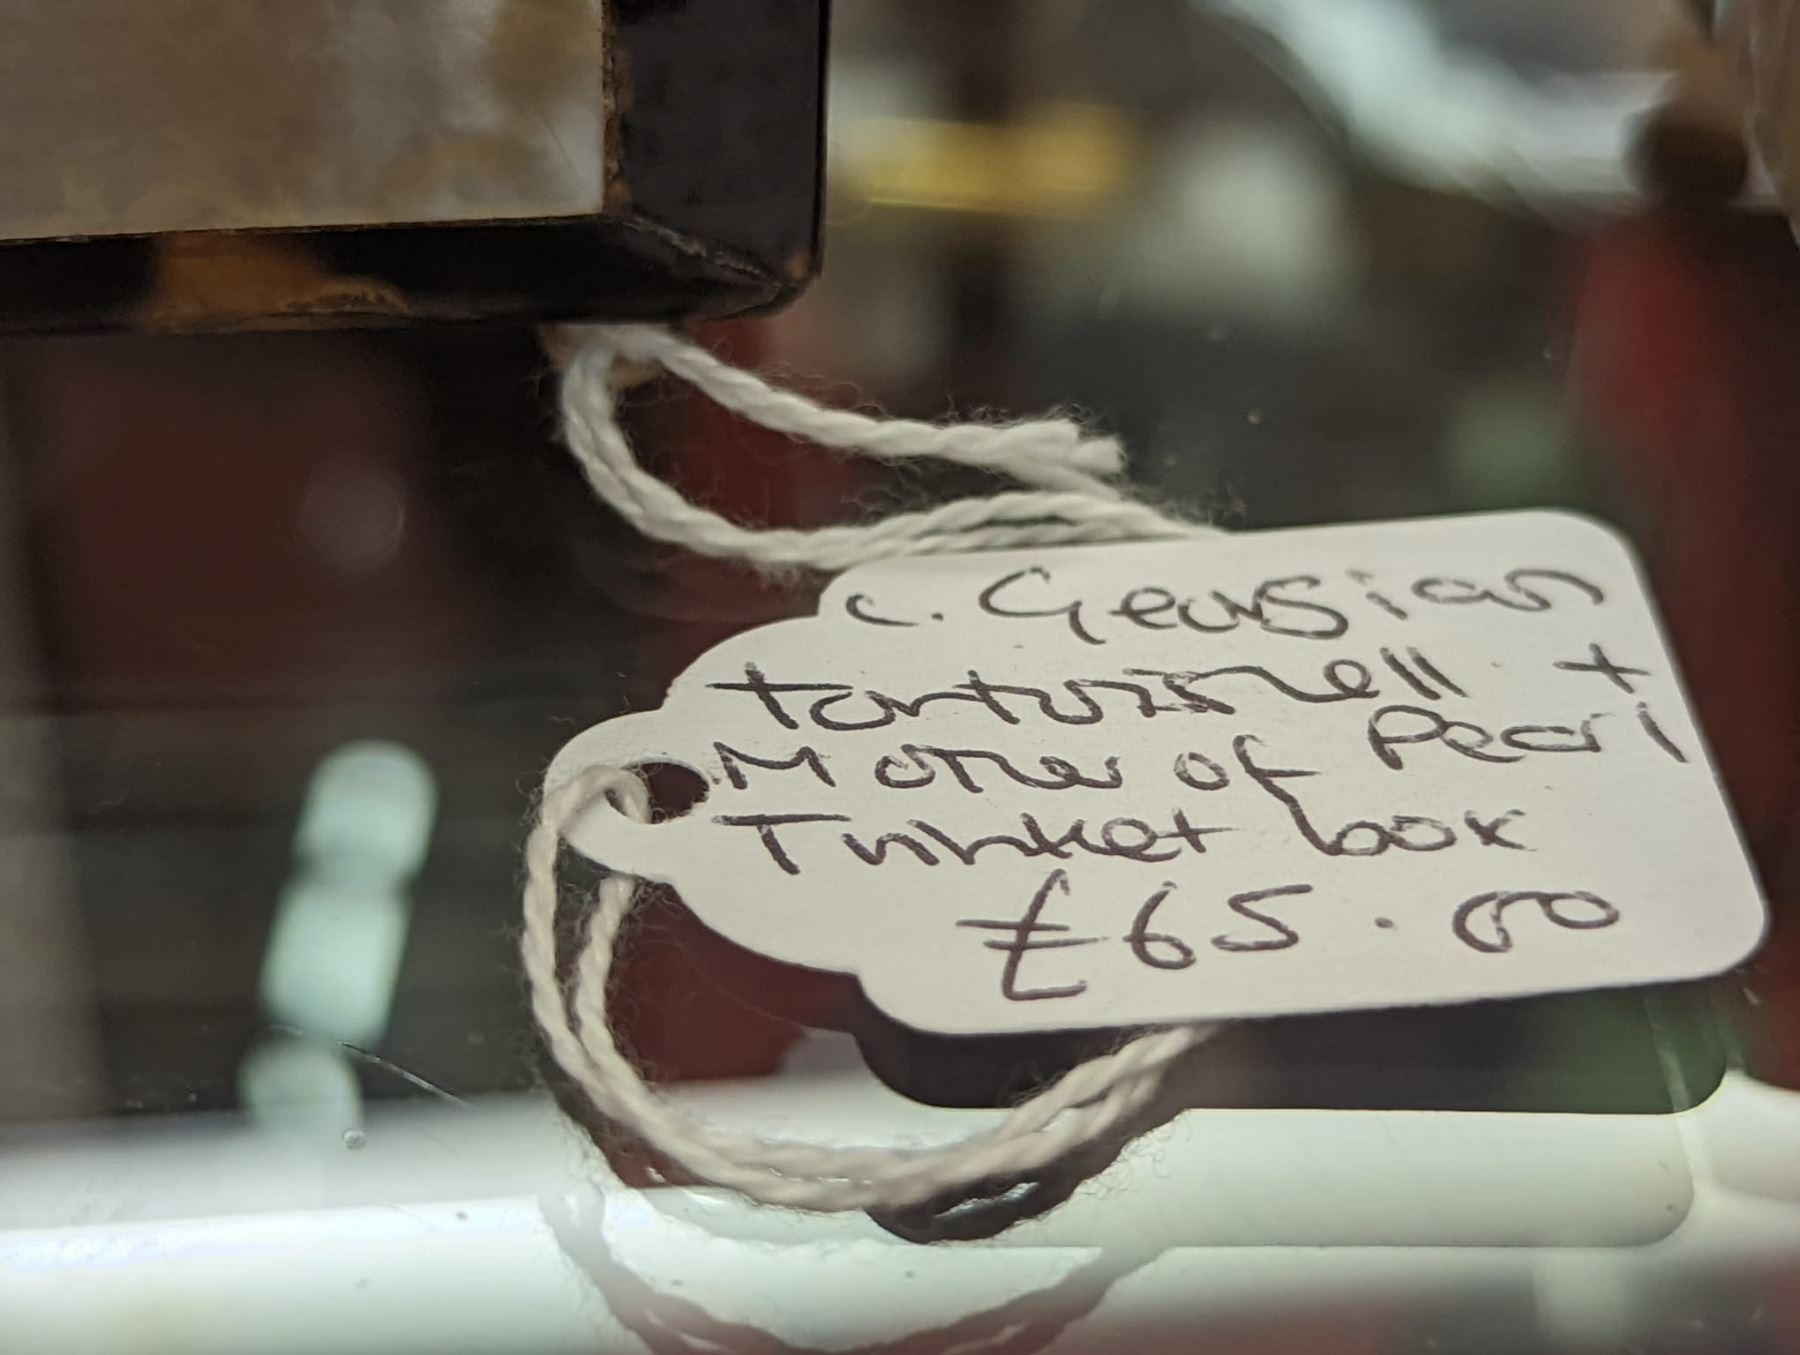 c. Georgian
tortoishell +
Mother of Pearl
Trinket box
£65.00